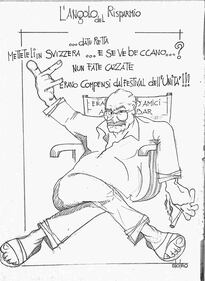 L'ANGOLO del RISPARMIO
...DATE RETTA
METTETELI IN SVIZZERA ... E SE VE BECCANO...?
NUN FATE CAZZATE
ERANO COMPENSI DAL FESTIVAL dell'"UNITA'"!!!
ERA
D'AMICI
DAR